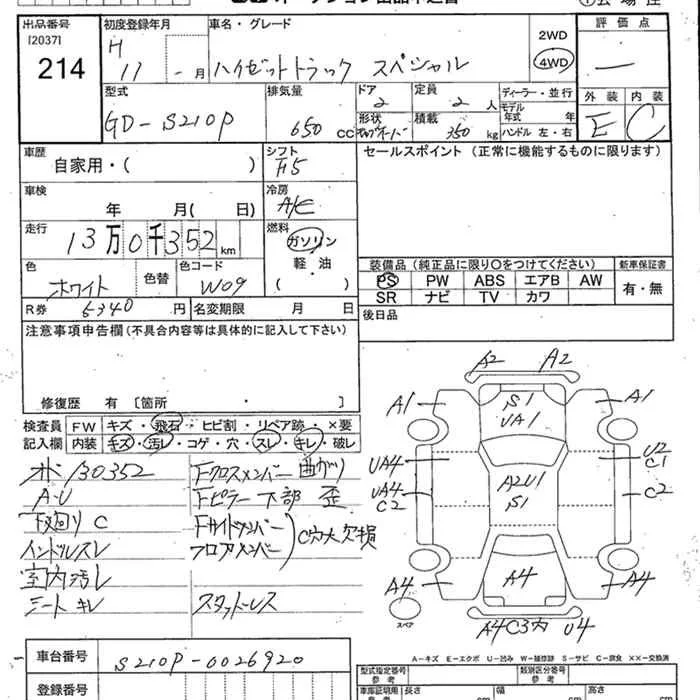 オークション出品申込書
出品番号
[2037]
214
初度登録年月
H 11 - 月
車名・グレード
ハイゼットトラック スペシャル
2WD
4WD
評価点
—
外装 内装
E C
型式
GD-S210P
排気量
650 cc
ドア
2
定員
2 人
形状
積載
350 kg
ディーラー・並行
モデル年式 年
ハンドル 左・右
車歴
自家用・( )
シフト
F5
セールスポイント(正常に機能するものに限ります)
車検
年 月( 日)
冷房
A/C
走行
13万0千352km
燃料
ガソリン
軽・油
( )
色
ホワイト
色替
色コード
W09
装備品(純正品に限り〇をつけてください)
新車保証書
PS PW ABS エアB AW
有・無
SR ナビ TV カワ
R券 6340円
名変期限 月 日
後日品
注意事項申告欄(不具合内容等は具体的に記入して下さい)
修復歴 有 [箇所 ・ ]
検査員
記入欄
FW キズ・飛石・ヒビ割・リペア跡・×要
内装 キズ・汚レ・コゲ・穴・スレ・キレ・破レ
オド 130352
A・U
下廻り C
インドルスレ
室内汚レ
シートキレ
Fクロスメンバー 曲がり
Fピラー下部 歪
Fサイドメンバー
フロアメンバー
C穴大欠損
スタットレス
A2 A2
A1 S1 A1
UA1
UA4 U2
C1
UA4 A2U1 C2
C2 S1
A4 A4 A4
スペア
A4C3内 U4
A-キズ E-エクボ U-凹み W-補修跡 S-サビ C-腐食 ××-交換済
車台番号
S210P-0026920
登録番号
型式指定番号
参考
類別区分番号
参考
車庫証明用
参考
長さ
cm
幅
cm
高さ
cm